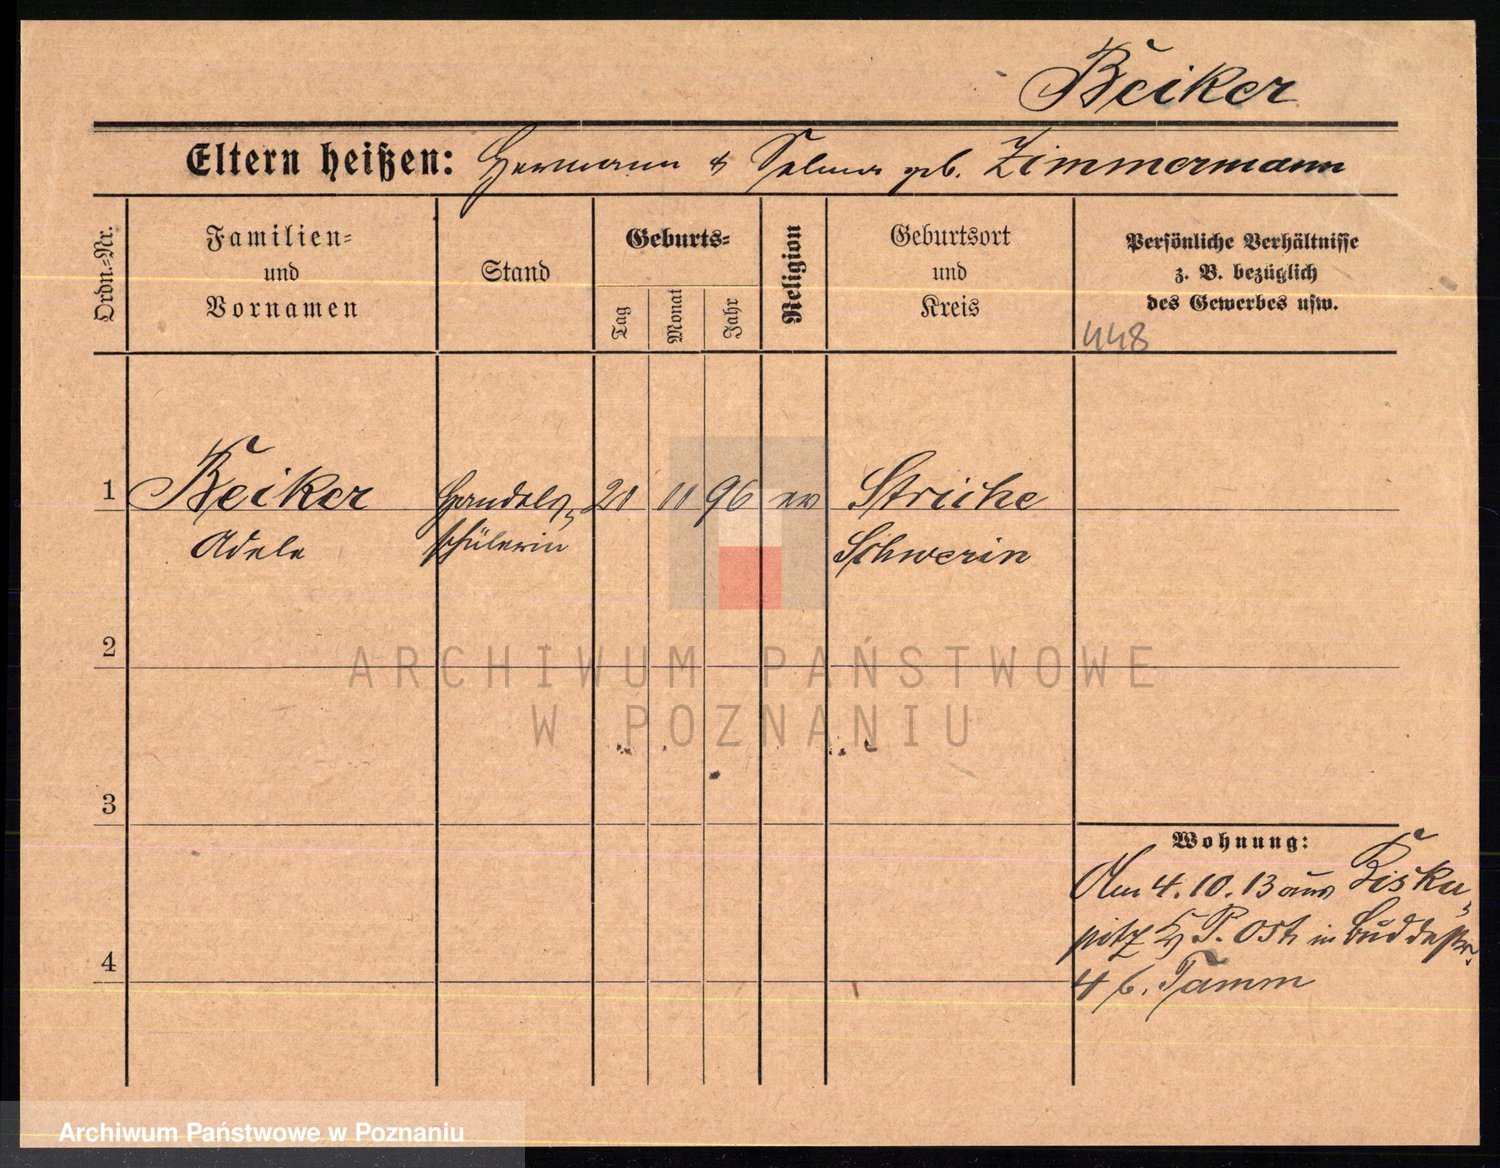 Beiker
Eltern heißen: Hermann & Selma geb. Zimmermann
Ordn.=Nr.
Familien=
und
Vornamen
Stand
Geburts=
Tag
Monat
Jahr
Religion
Geburtsort
und
Kreis
Persönliche Verhältnisse
z. B. bezüglich
des Gewerbes usw.
448
1 Beiker Handels= 20 11 96 ev Striche
Adele schülerin Schwerin
2
ARCHIWUM PAŃSTWOWE
W POZNANIU
3
Wohnung:
Am 4.10.13 aus Bisku=
pitz Kr P. Ost in Buddestr.
4 b. Tamm
4
Archiwum Państwowe w Poznaniu